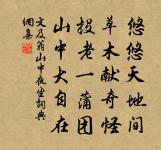 悠悠天地間
草木献奇怪
投老一蒲團
山中大自在
文及翁山中夜坐詞典
網集